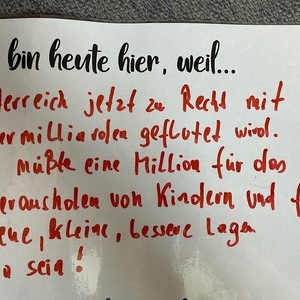 bin heute hier, weil...
terreich jetzt zu Recht mit
ermilliarden geflutet wird.
müßte eine Million für das
erausholen von Kindern und f
ene, kleine, bessere Lager
n sein!